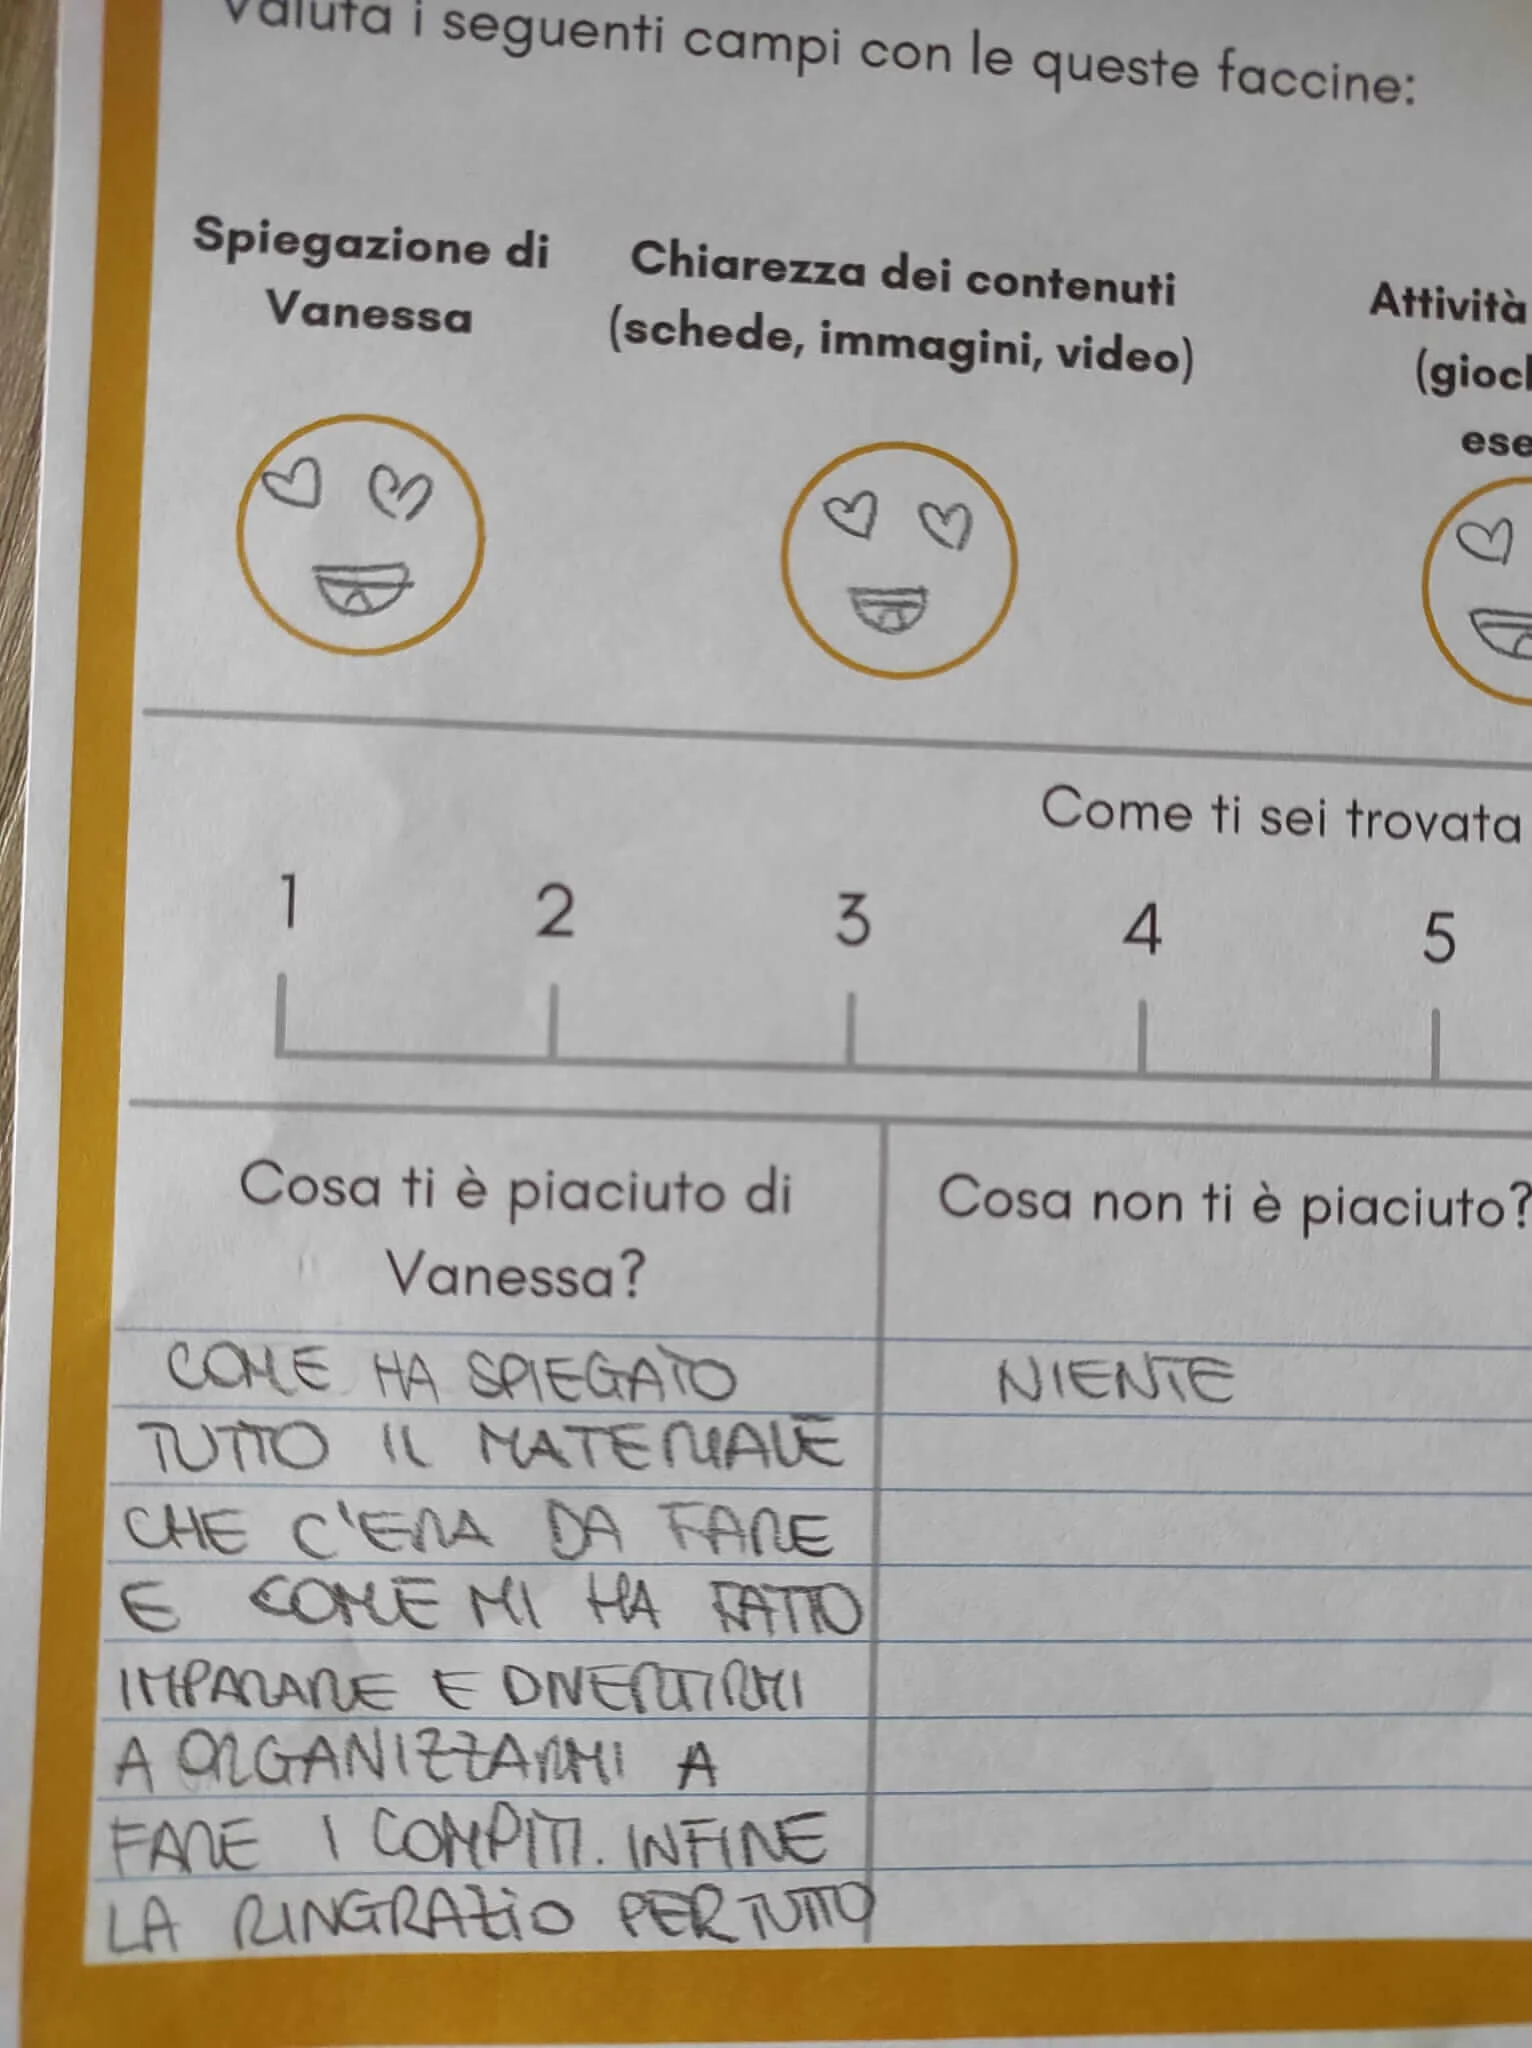 Valuta i seguenti campi con le queste faccine:
Spiegazione di
Vanessa
Chiarezza dei contenuti
(schede, immagini, video)
Attività
Come ti sei trovata
1 2 3 4 5
Cosa ti è piaciuto di
Vanessa?
COME HA SPIEGATO
TUTTO IL MATERIALE
CHE C'ERA DA FARE
E COME MI HA FATTO
IMPARARE E DIVERTIRMI
A ORGANIZZARMI A
FARE I COMPITI. INFINE
LA RINGRAZIO PER TUTTO
Cosa non ti è piaciuto?
NIENTE